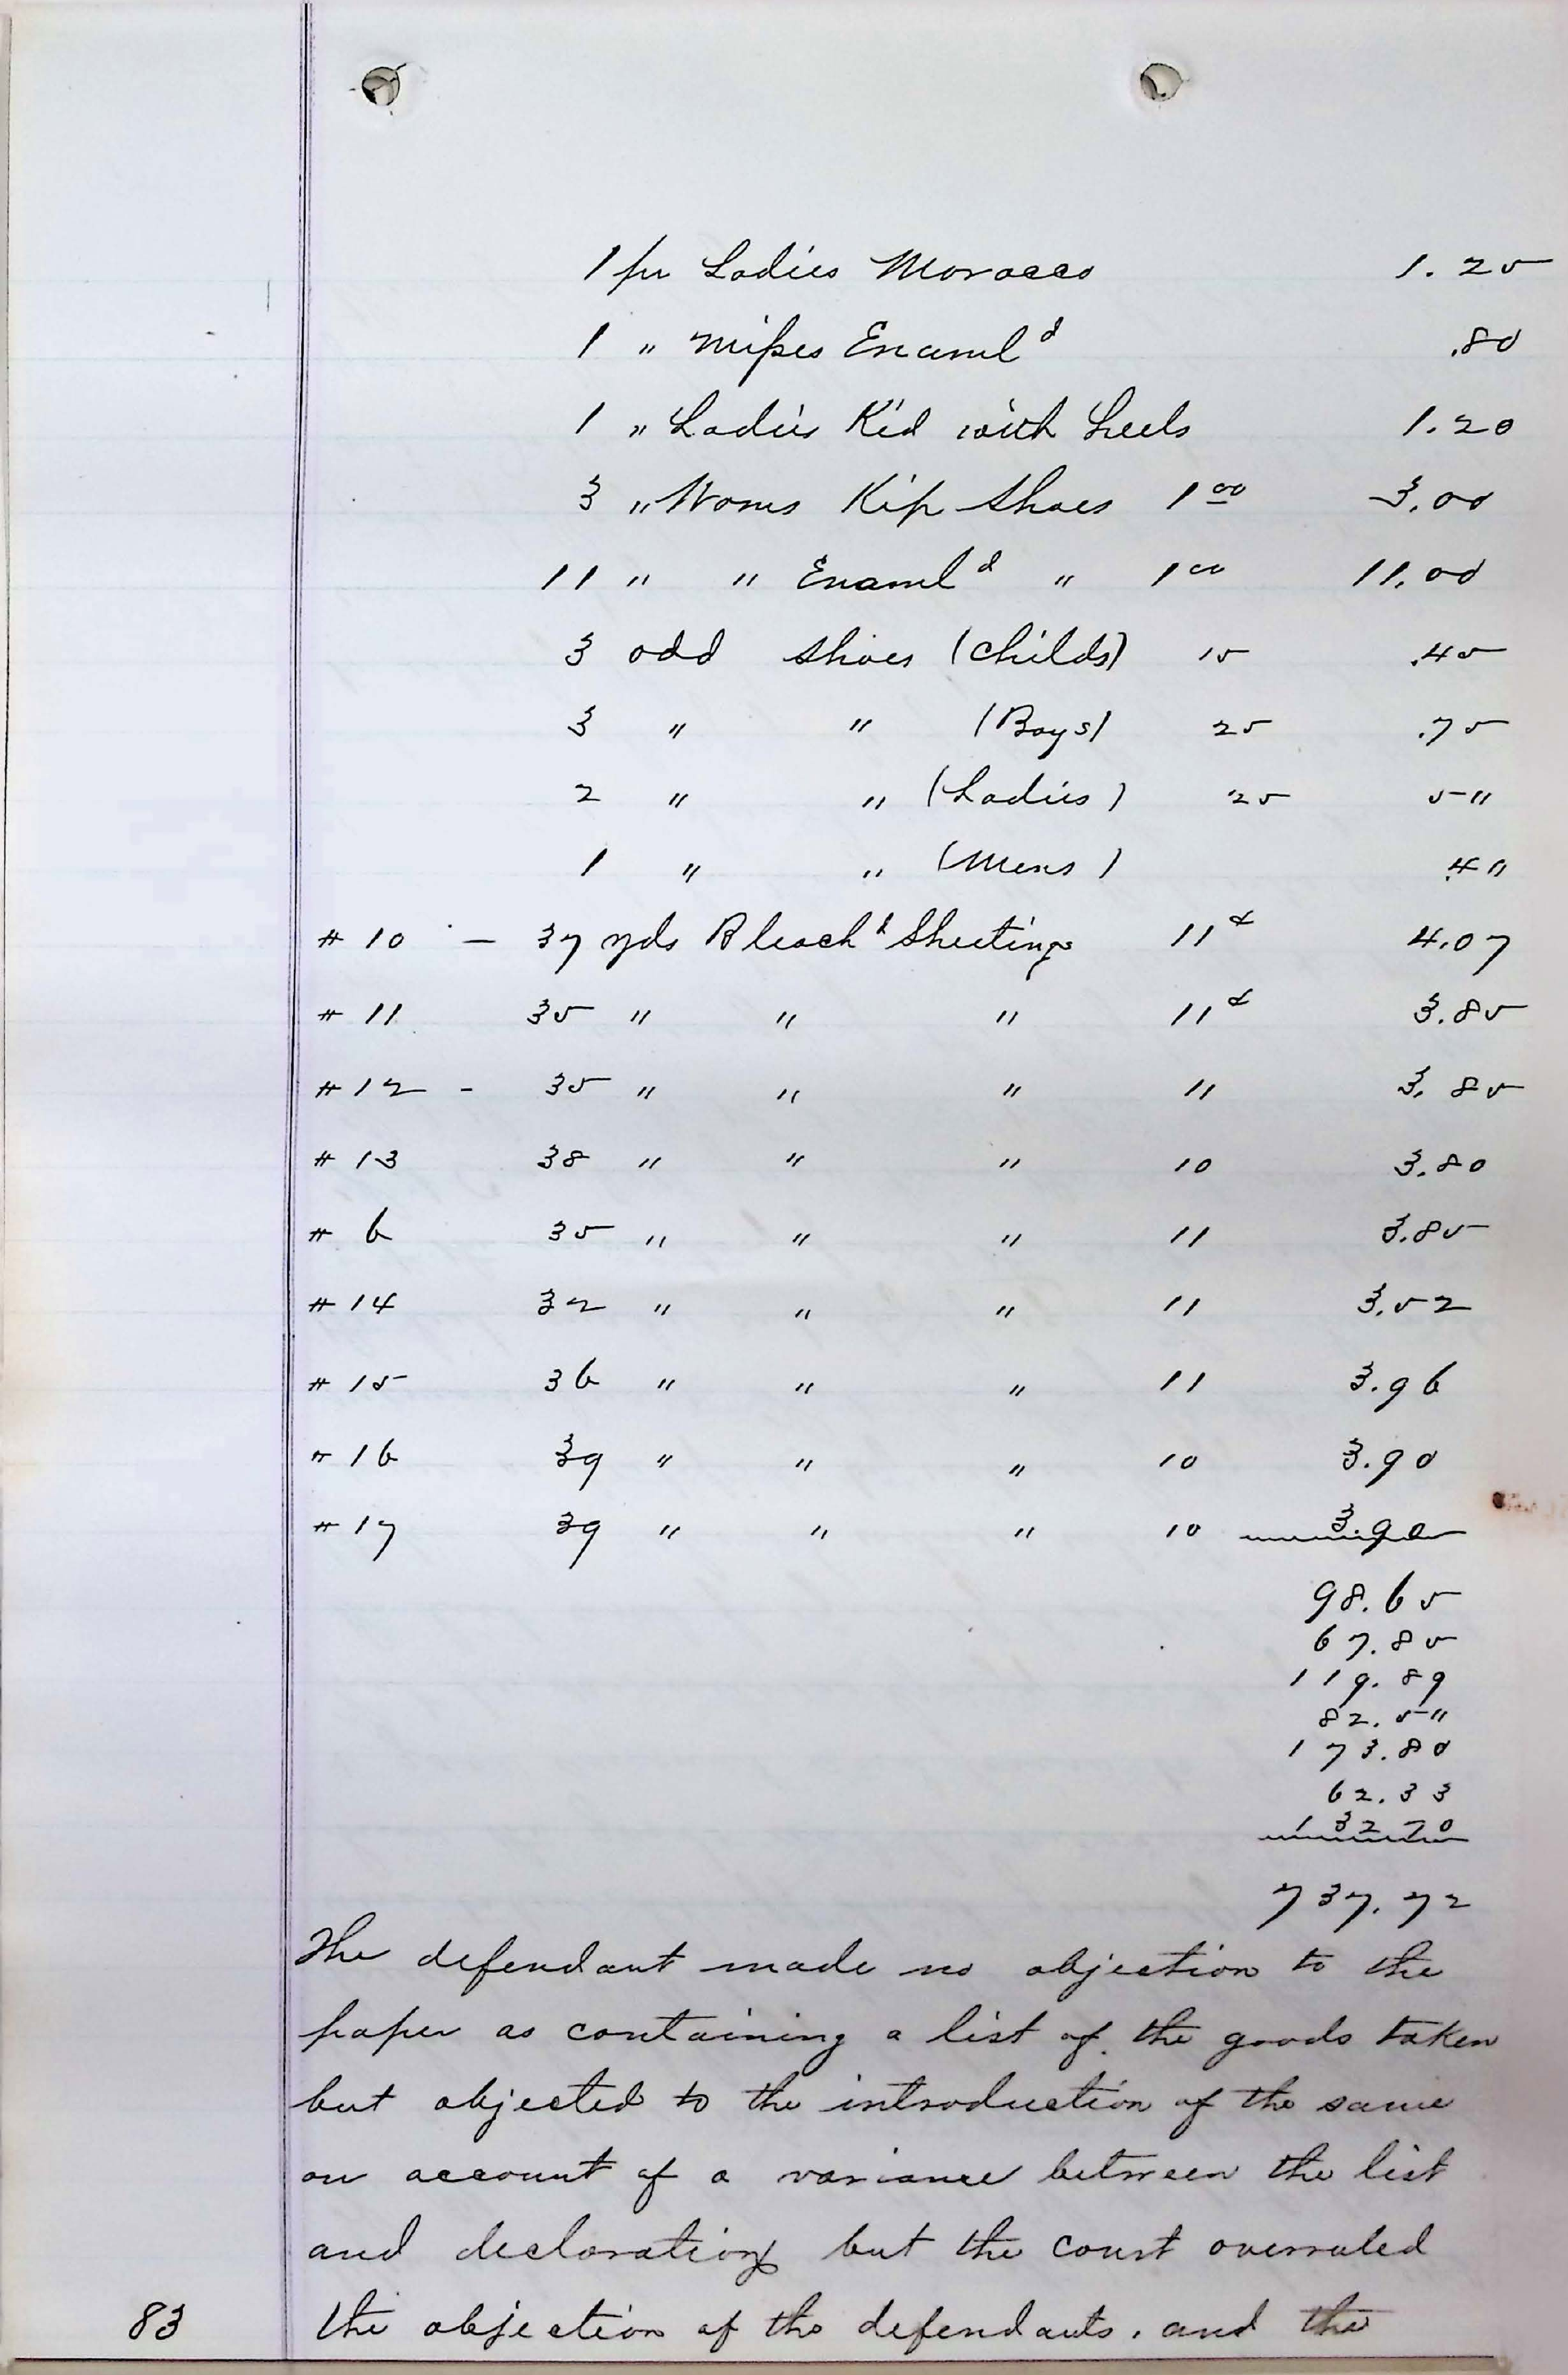 1 pr Ladies Morocco 1.25
1 " Misses Enameld .80
1 " Ladies Kid with heels 1.20
3 " Woms Kip Shoes 1 00 3.00
11 " " Enameld " 1 00 11.00
3 odd shoes (childs) 15 .45
3 " " (Boys) 25 .75
2 " " (Ladies) 25 5"
1 " " (Mens) .4"
# 10 - 37 yds Bleachd Sheetings 11¢ 4.07
# 11 35 " " " 11¢ 3.85
# 12 - 35 " " " 11 3.85
# 13 38 " " " 10 3.80
# 6 35 " " " 11 3.85
# 14 32 " " " 11 3.52
# 15 36 " " " 11 3.96
# 16 39 " " " 10 3.90
# 17 39 " " " 10 3.90
98.65
67.85
119.89
82.5"
173.80
62.33
132 70
737.72
The defendant made no objection to the
paper as containing a list of the goods taken
but objected to the introduction of the same
on account of a variance between the list
and declaration but the court overruled
83 the objection of the defendants, and the